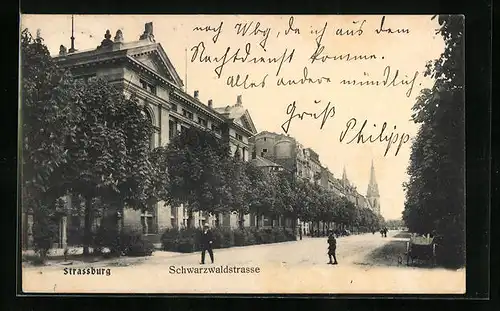 noch Wbg, da ich aus dem
Nachtdienst komme.
alles andere mündlich
Gruß
Philipp
Strassburg
Schwarzwaldstrasse